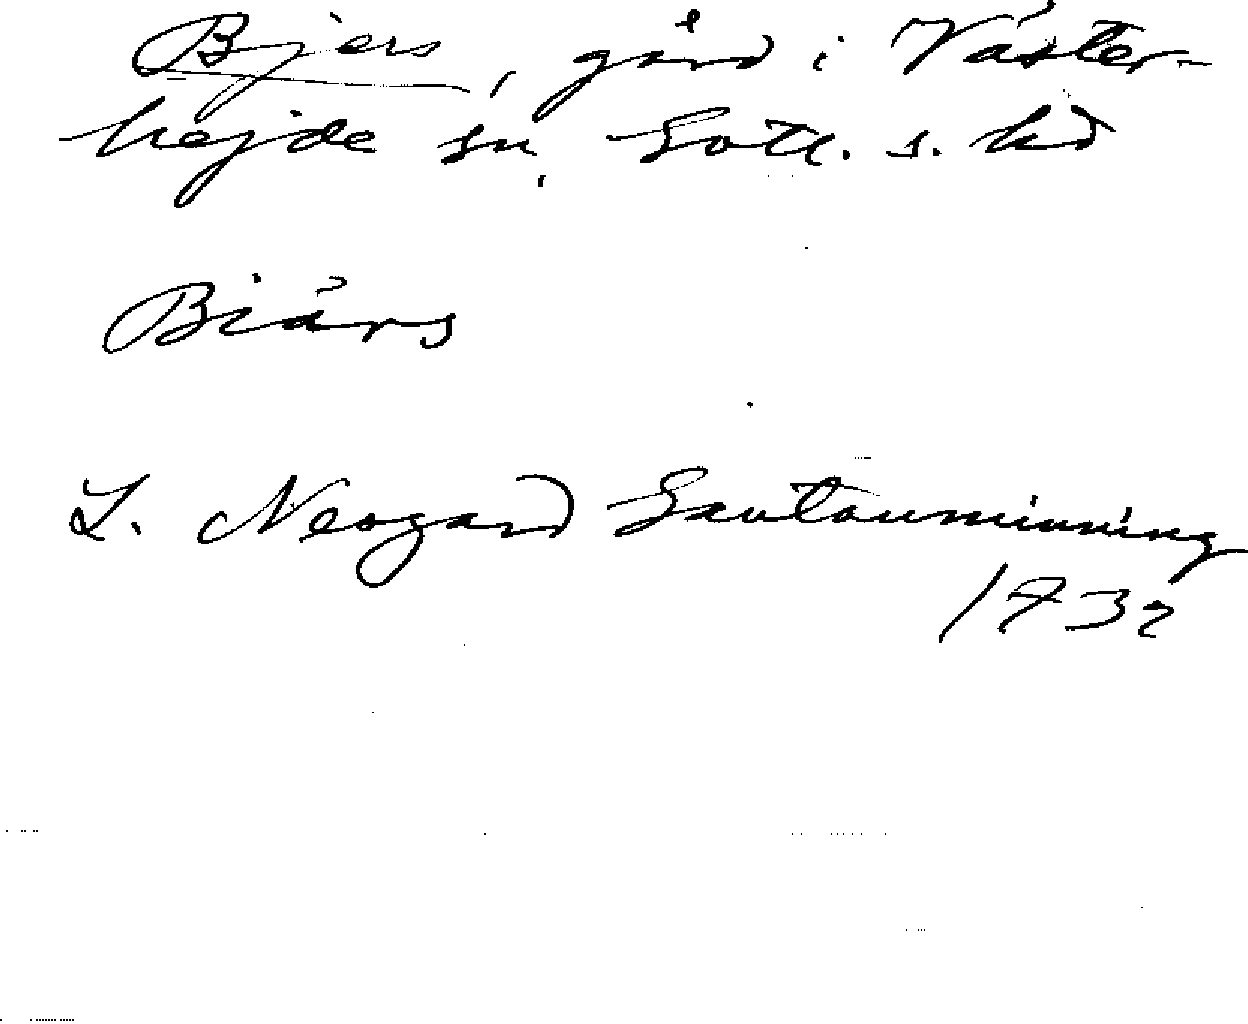 Bjers, gård i Väster-
hejde sn, Gotl. s. hd
Biärs
L. Neogard Gautauminning
1732